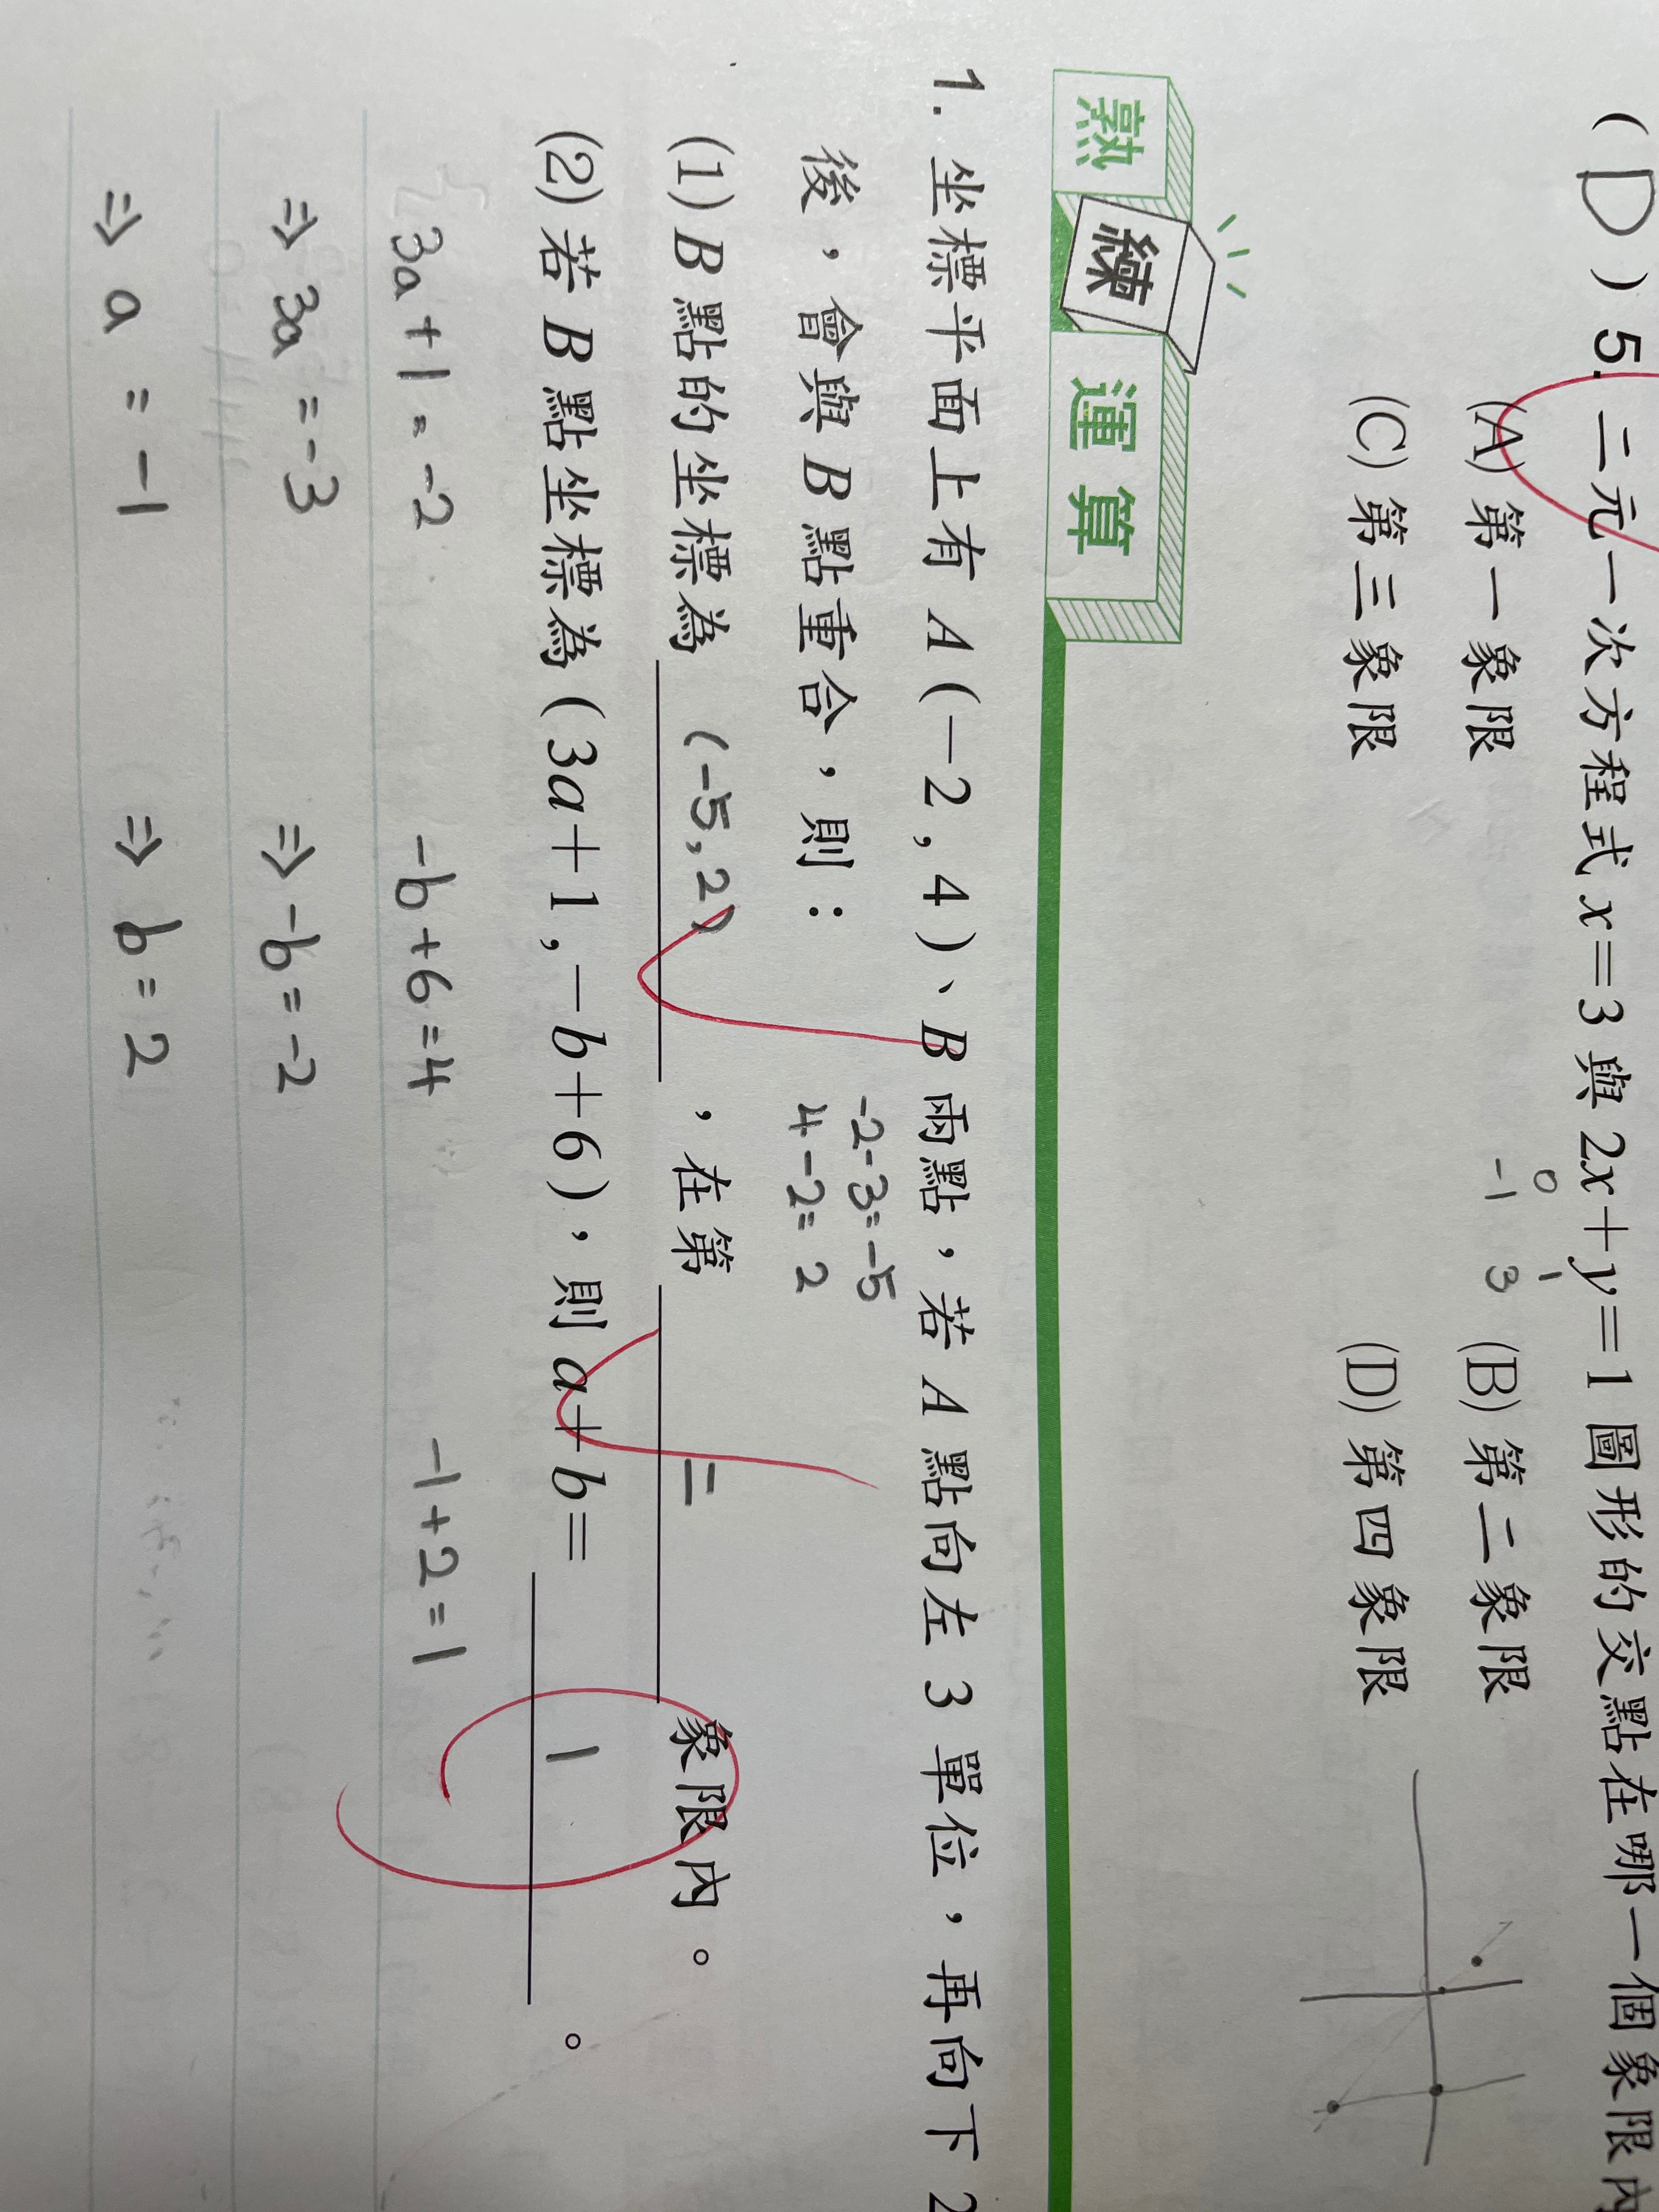 ( D ) 5. 二元一次方程式 x=3 與 2x+y=1 圖形的交點在哪一個象限內
0 1
-1 3
(A) 第一象限 (B) 第二象限
(C) 第三象限 (D) 第四象限
熟練運算
1. 坐標平面上有 A(-2,4)、B 兩點，若 A 點向左 3 單位，再向下 2
-2-3=-5
後，會與 B 點重合，則：
4-2=2
(1) B 點的坐標為 (-5,2) ，在第 二 象限內。
(2) 若 B 點坐標為(3a+1,-b+6)，則 a+b= 1 。
3a+1=-2 -b+6=4 -1+2=1
⇒ 3a=-3 ⇒ -b=-2
⇒ a=-1 ⇒ b=2